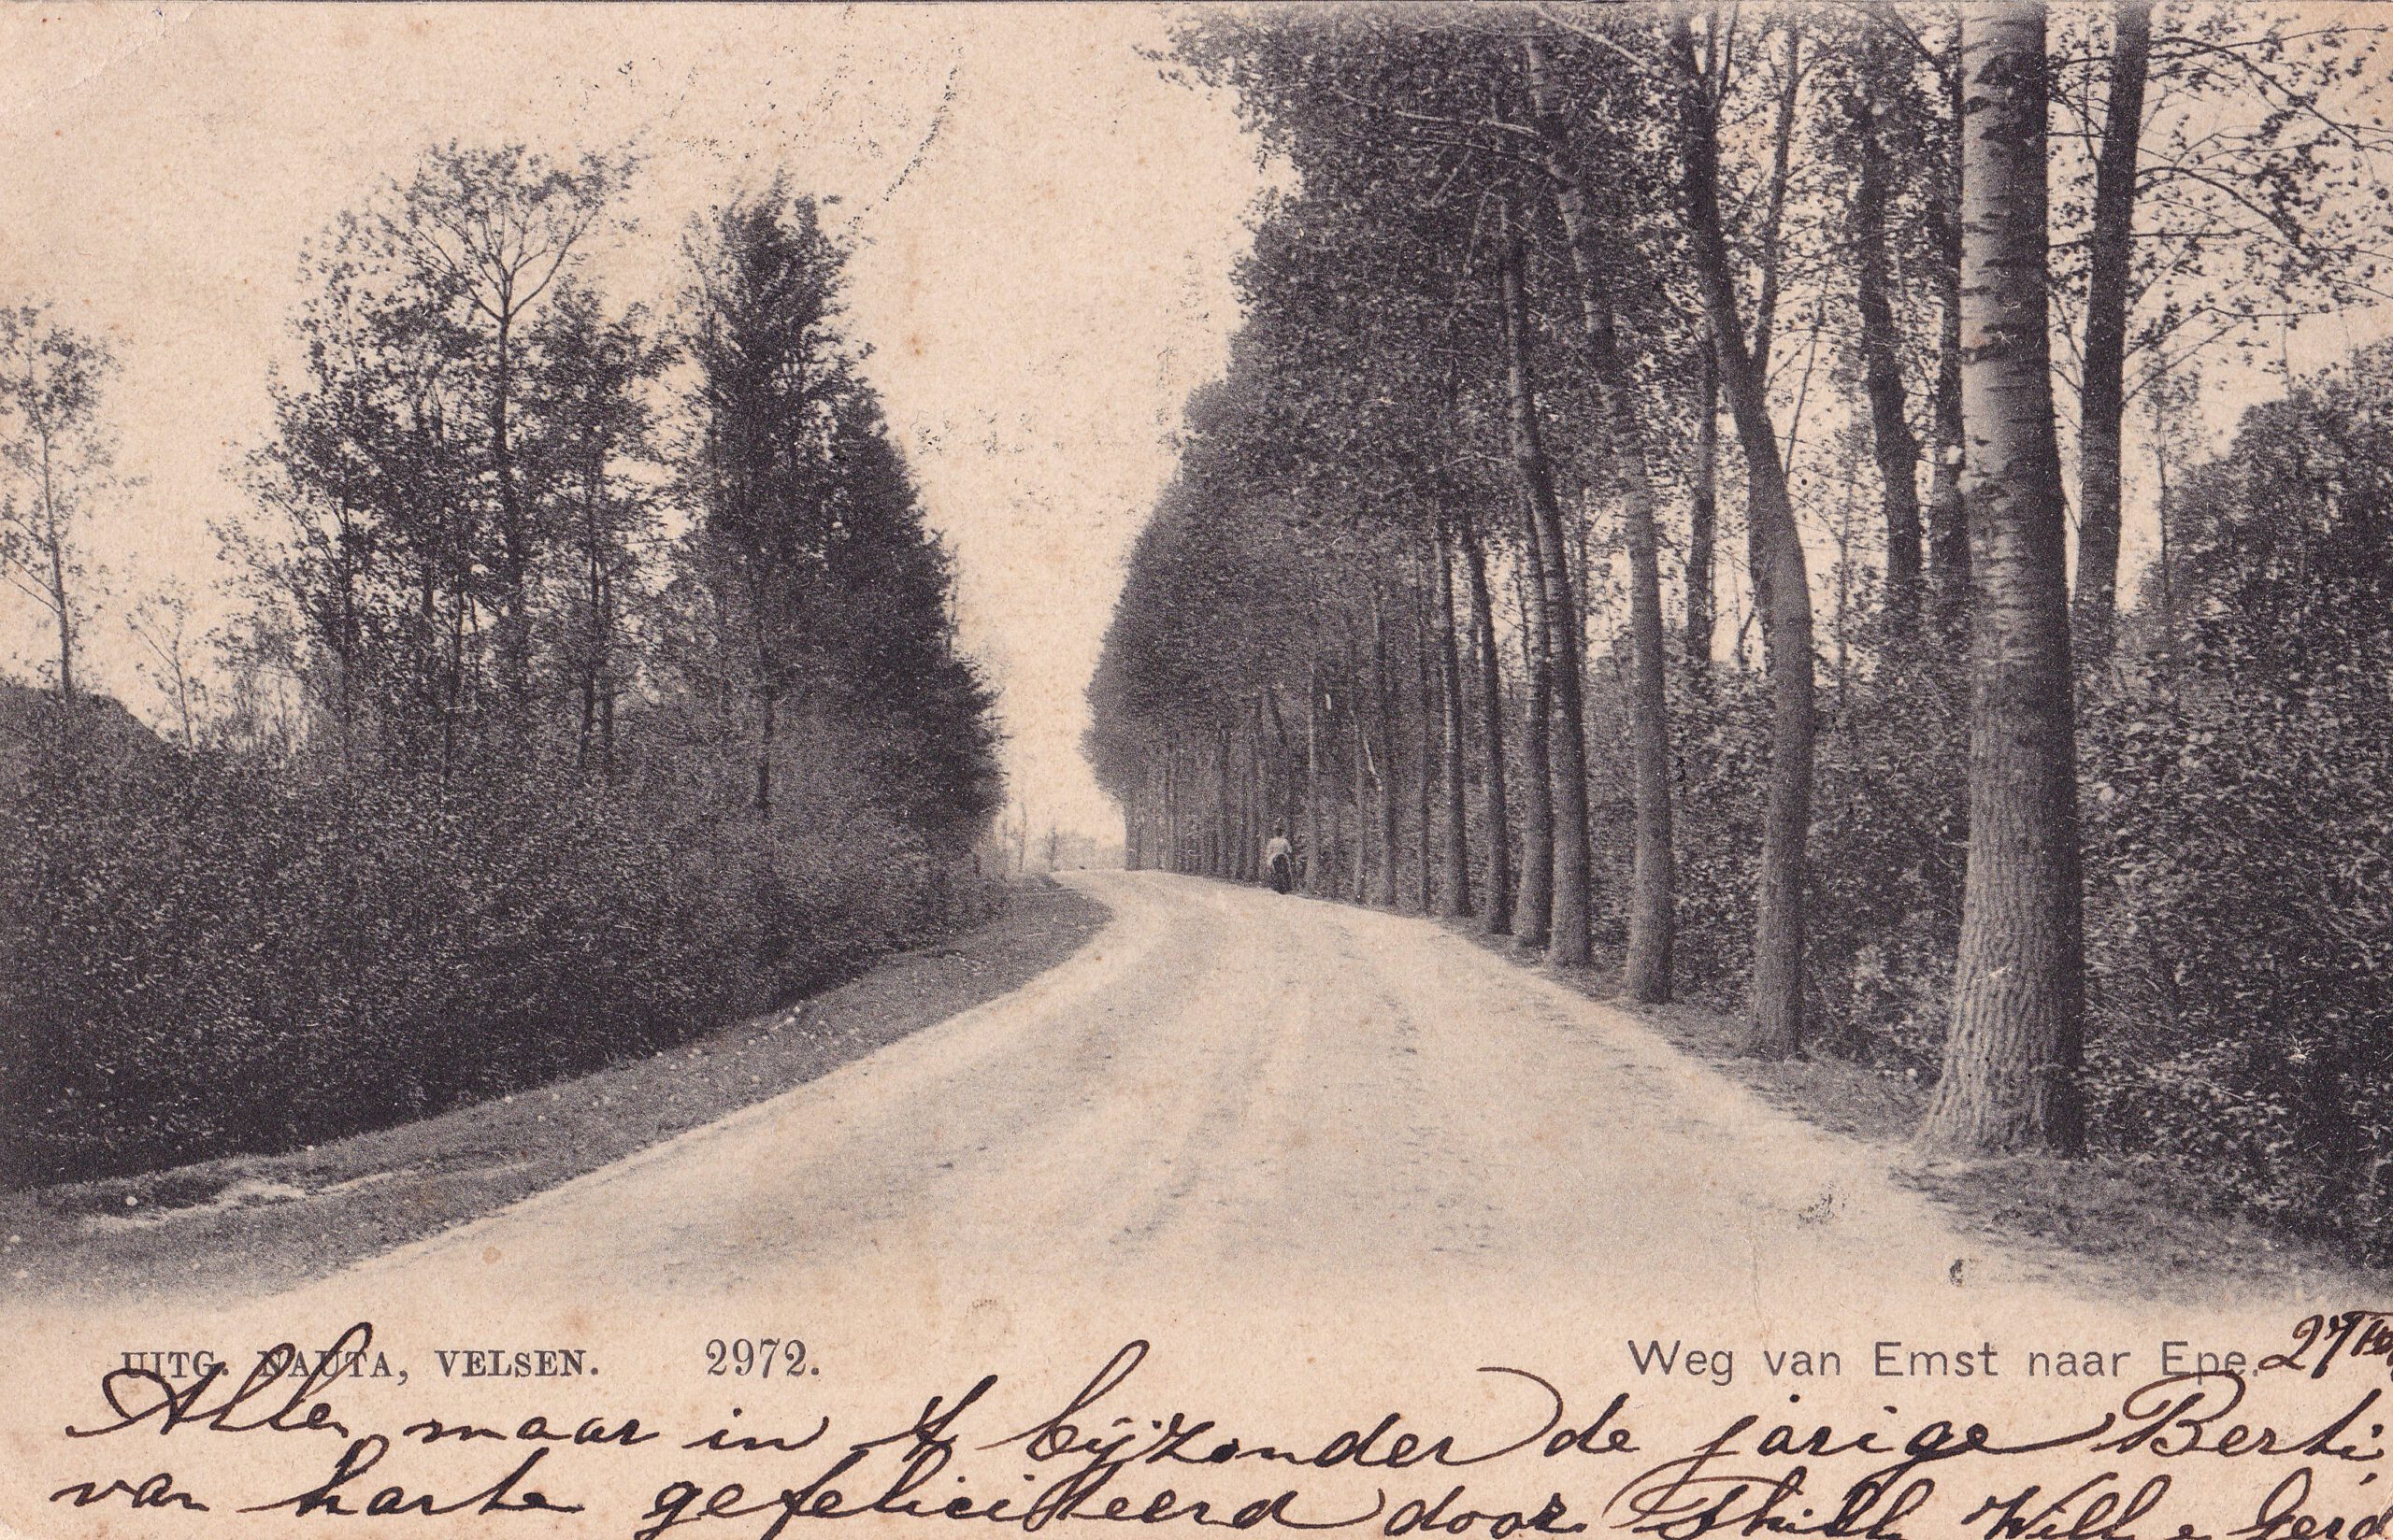 UITG. NAUTA, VELSEN. 2972. Weg van Emst naar Epe. 27
Allen maar in 't bijzonder de jarige Berti
van harte gefeliciteerd door Will e Gerd